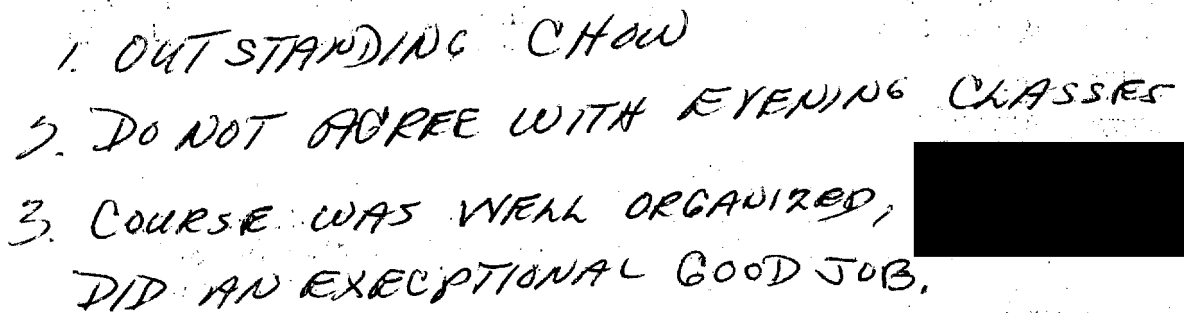 1. OUTSTANDING CHOW
2. DO NOT AGREE WITH EVENING CLASSES
3. COURSE WAS WELL ORGANIZED,
DID AN EXECPTIONAL GOOD JOB.